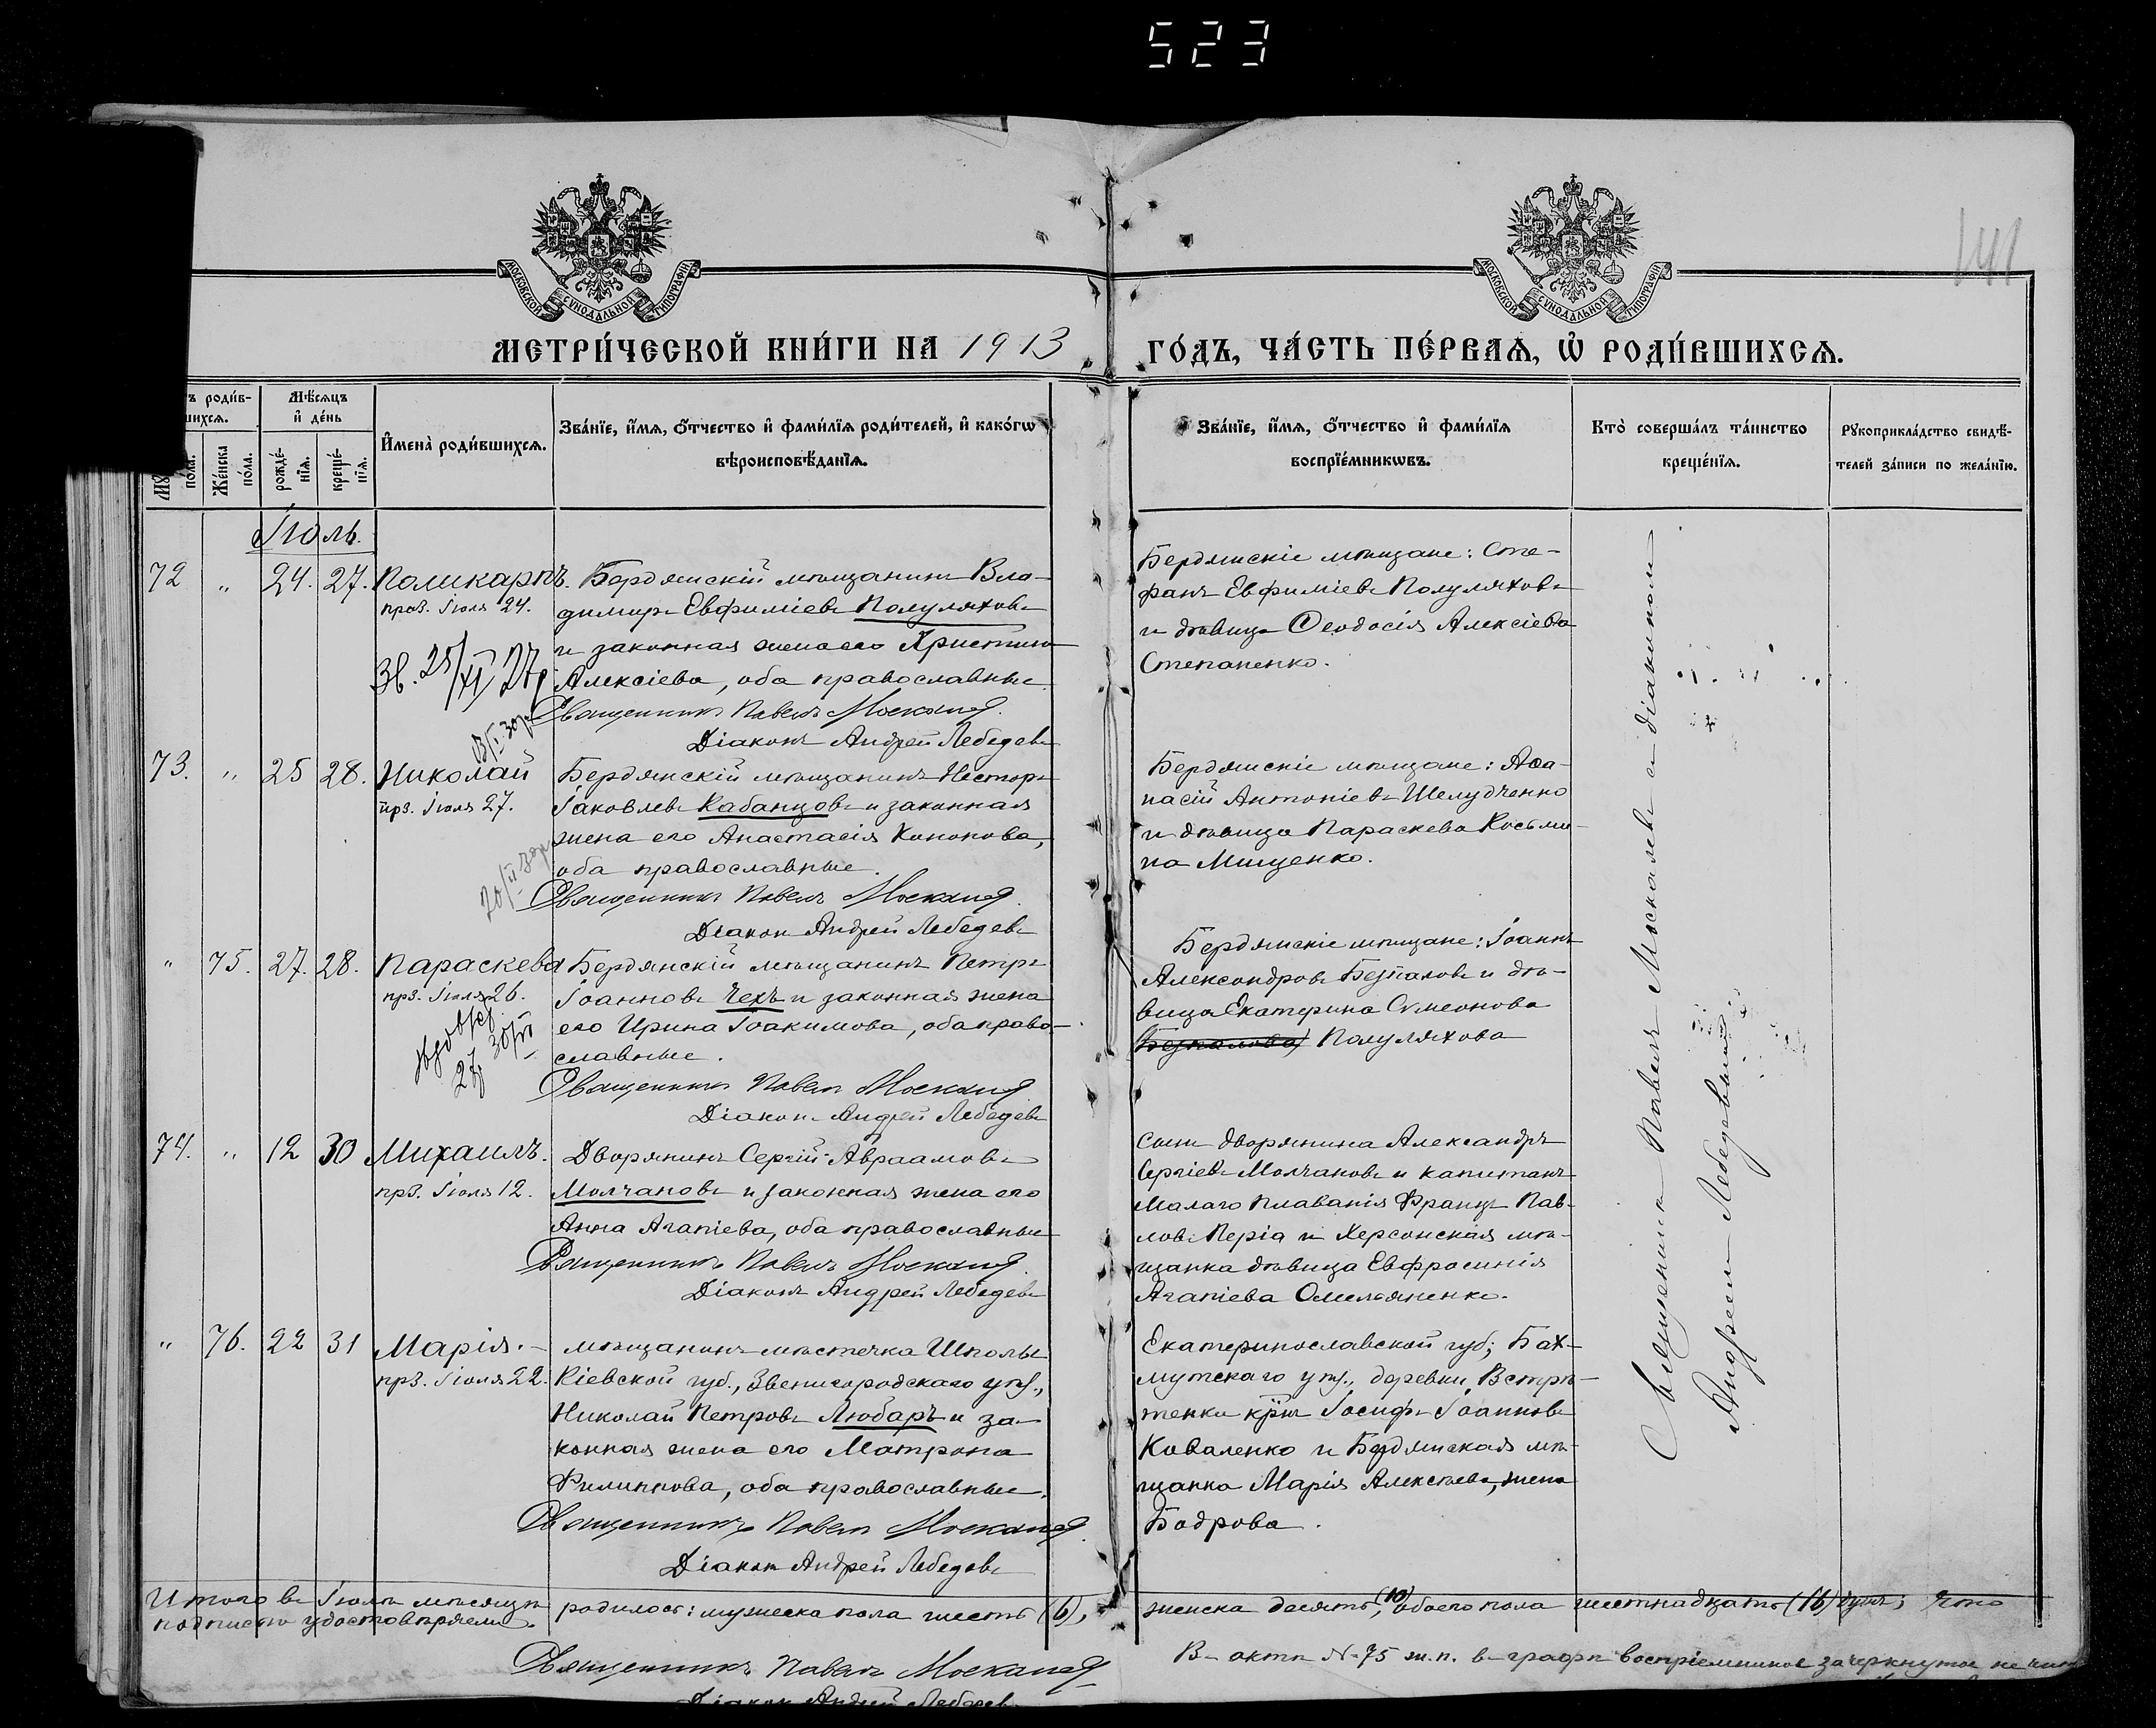 523
141
МОСКОВСКОЙ СѴНОДАЛЬНОЙ ТИПОГРАФІИ
МОСКОВСКОЙ СѴНОДАЛЬНОЙ ТИПОГРАФІИ
МЕТРИ́ЧЕСКОЙ КНИ́ГИ НА 1913
ГО́ДЪ, ЧА́СТЬ ПЕ́РВАѦ, Ѡ҆ РОДИ́ВШИХСѦ.
ъ роди́в-
шихсѧ.
по́ла.
Же́нска по́ла.
Мѣ́сѧцъ и҆ де́нь
рожде́-нїѧ.
креще́-нїѧ.
И҆мена̀ роди́вшихсѧ.
Зва́нїе, и҆́мѧ, ѻ҆́тчество и҆ фами́лїѧ роди́телей, и҆ како́гѡ
вѣроисповѣ́данїѧ.
Зва́нїе, и҆́мѧ, ѻ҆́тчество и҆ фами́лїѧ
воспрїе́мникѡвъ.
Кто̀ соверша́лъ та́инство
креще́нїѧ.
Рꙋкоприкла́дство свидѣ́-
телей за́писи по жела́нїю.
Іюль.
72 " 24. 27. Поликарпъ.
праз. Іюля 24.
Зв. 25/XI 27
Бердянскій мѣщанинъ Вла-
димиръ Евфиміевъ Полуляховъ
и законная жена его Христина
Алексіева, оба православные.
Священникъ Павелъ Москалев
Діаконъ Андрей Лебедевъ
Бердянскіе мѣщане: Сте-
фанъ Евфиміевъ Полуляховъ
и дѣвица Ѳеодосія Алексіева
Степаненко.
73. " 25 28. Николай
прз. Іюля 27.
Бердянскій мѣщанинъ Несторъ
Іаковлевъ Кабанцовъ и законная
жена его Анастасія Кононова,
оба православные.
Священникъ Павелъ Москалев
Діаконъ Андрей Лебедевъ
Бердянскіе мѣщане: Аѳа-
насій Антоніевъ Шелудченко
и дѣвица Параскева Косьми-
на Мищенко.
" 75. 27. 28. Параскева
прз. Іюля 26.
Бердянскій мѣщанинъ Петръ
Іоанновъ Чехъ и законная жена
его Ирина Іоакимова, оба право-
славные.
Священникъ Павелъ Москалев
Діаконъ Андрей Лебедевъ
Бердянскіе мѣщане: Іоаннъ
Александровъ Безпаловъ и дѣ-
вица Екатерина Сѵмеонова
Безпалова Полуляхова
74. " 12 30 Михаилъ.
прз. Іюля 12.
Дворянинъ Сергій Авраамовъ
Молчановъ и законная жена его
Анна Агапіева, оба православные
Священникъ Павелъ Москалев
Діаконъ Андрей Лебедевъ
Сынъ дворянина Александръ
Сергіевъ Молчановъ и капитанъ
малаго плаванія Францъ Пав-
ловъ Періа и Херсонская мѣ-
щанка дѣвица Евфросинія
Агапіева Омельяненко.
" 76. 22 31 Марія.
прз. Іюля 22.
мѣщанинъ мѣстечка Шполы
Кіевской губ., Звенигородскаго уѣз.,
Николай Петровъ Любаръ и за-
конная жена его Матрона
Филиппова, оба православные.
Священникъ Павелъ Москалев
Діаконъ Андрей Лебедевъ
Екатеринославской губ., Бах-
мутскаго уѣз., деревни Встрѣ-
тенки крнъ Іосифъ Іоанновъ
Коваленко и Бердянская мѣ-
щанка Марія Алексѣева, жена
Бодрова.
Священникъ Павелъ Москалевъ съ діакономъ
Андреемъ Лебедевымъ
Итого въ Іюлѣ мѣсяцѣ родилось: мужеска пола шесть (6), женска десять (10), обоего пола шестнадцать (16) душъ, что
подписью удостовѣряемъ.
Священникъ Павелъ Москалев
Діаконъ Андрей Лебедевъ
Въ актѣ № 75 ж.п. въ графѣ воспріемниковъ зачеркнутое не